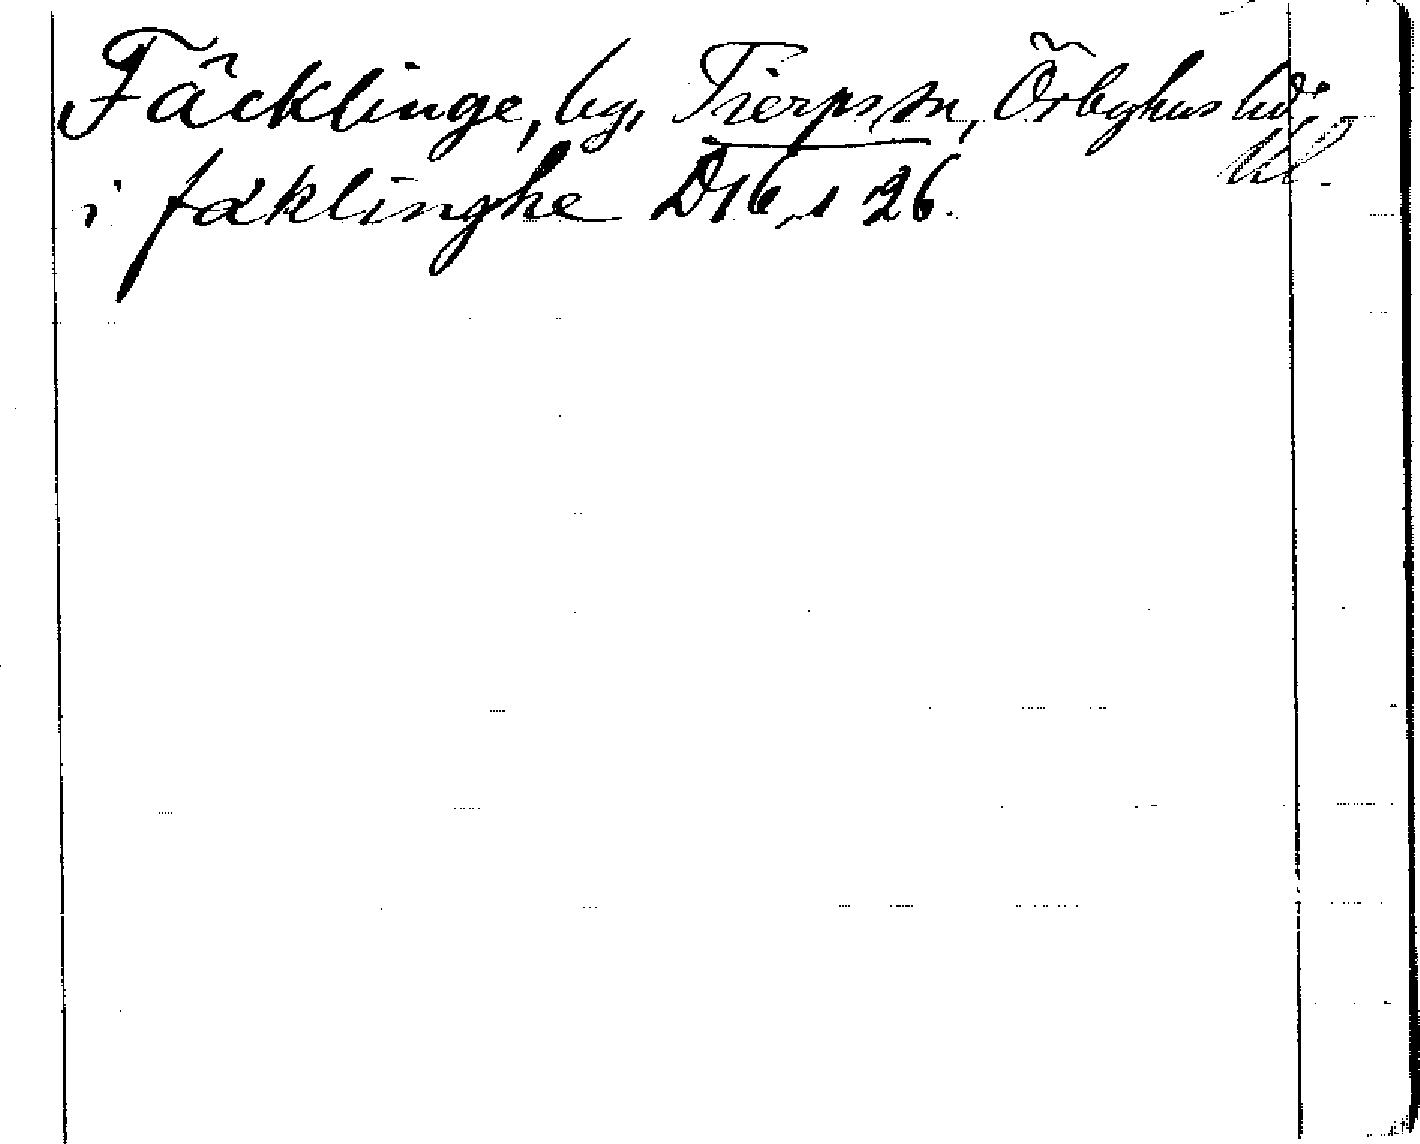 Fäcklinge, by, Tierps sn, Örbyhus hd.
Upl.
i fäklinghe D16, 1 26.